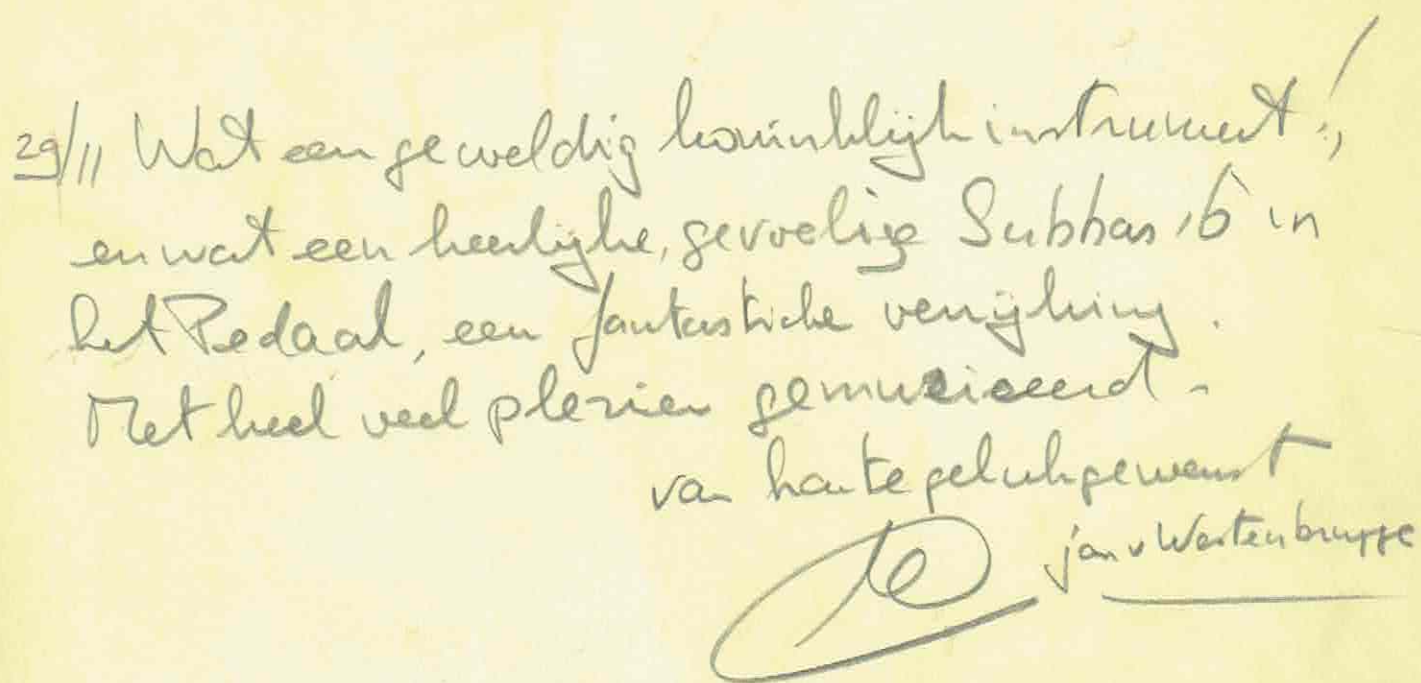 29/11 Wat een geweldig koninklijk instrument!,
en wat een heerlijke, gevoelige Subbas 16' in
het Pedaal, een fantastische verrijking.
Met heel veel plezier gemusiceerd -
van harte gelukgewenst
jan v Westenbrugge